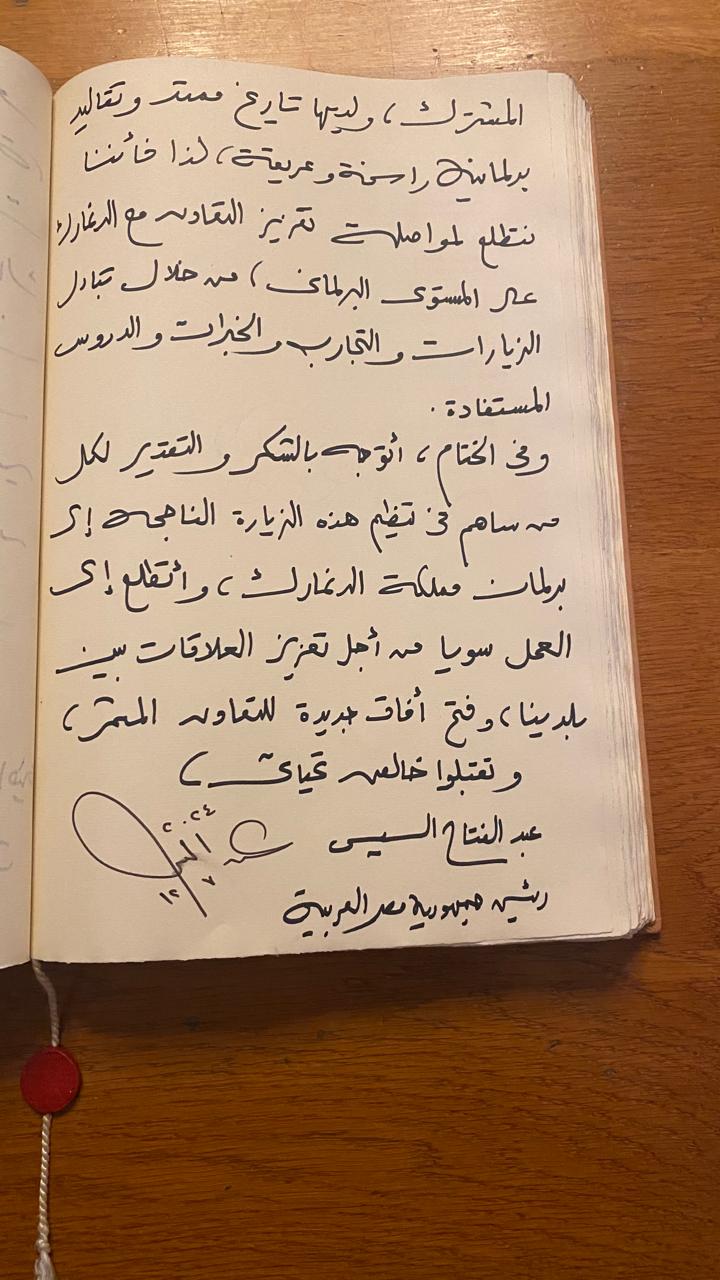 المشترك، ولديها تاريخ ممتد وتقاليد
برلمانية راسخة وعريقة، لذا فأننا
نتطلع لمواصلة تعزيز التعاون مع الدنمارك
على المستوى البرلماني، من خلال تبادل
الزيارات والتجارب والخبرات والدروس
المستفادة.
وفى الختام، أتوجه بالشكر والتقدير لكل
من ساهم فى تنظيم هذه الزيارة الناجحة إلى
برلمان مملكة الدنمارك، وأتطلع إلى
العمل سويا من أجل تعزيز العلاقات بين
بلدينا، وفتح أفاق جديدة للتعاون المثمر،
وتقبلوا خالص تحياتى،
عبد الفتاح السيسى
٢٠٢٤
١٢ ٧
رئيس جمهورية مصر العربية